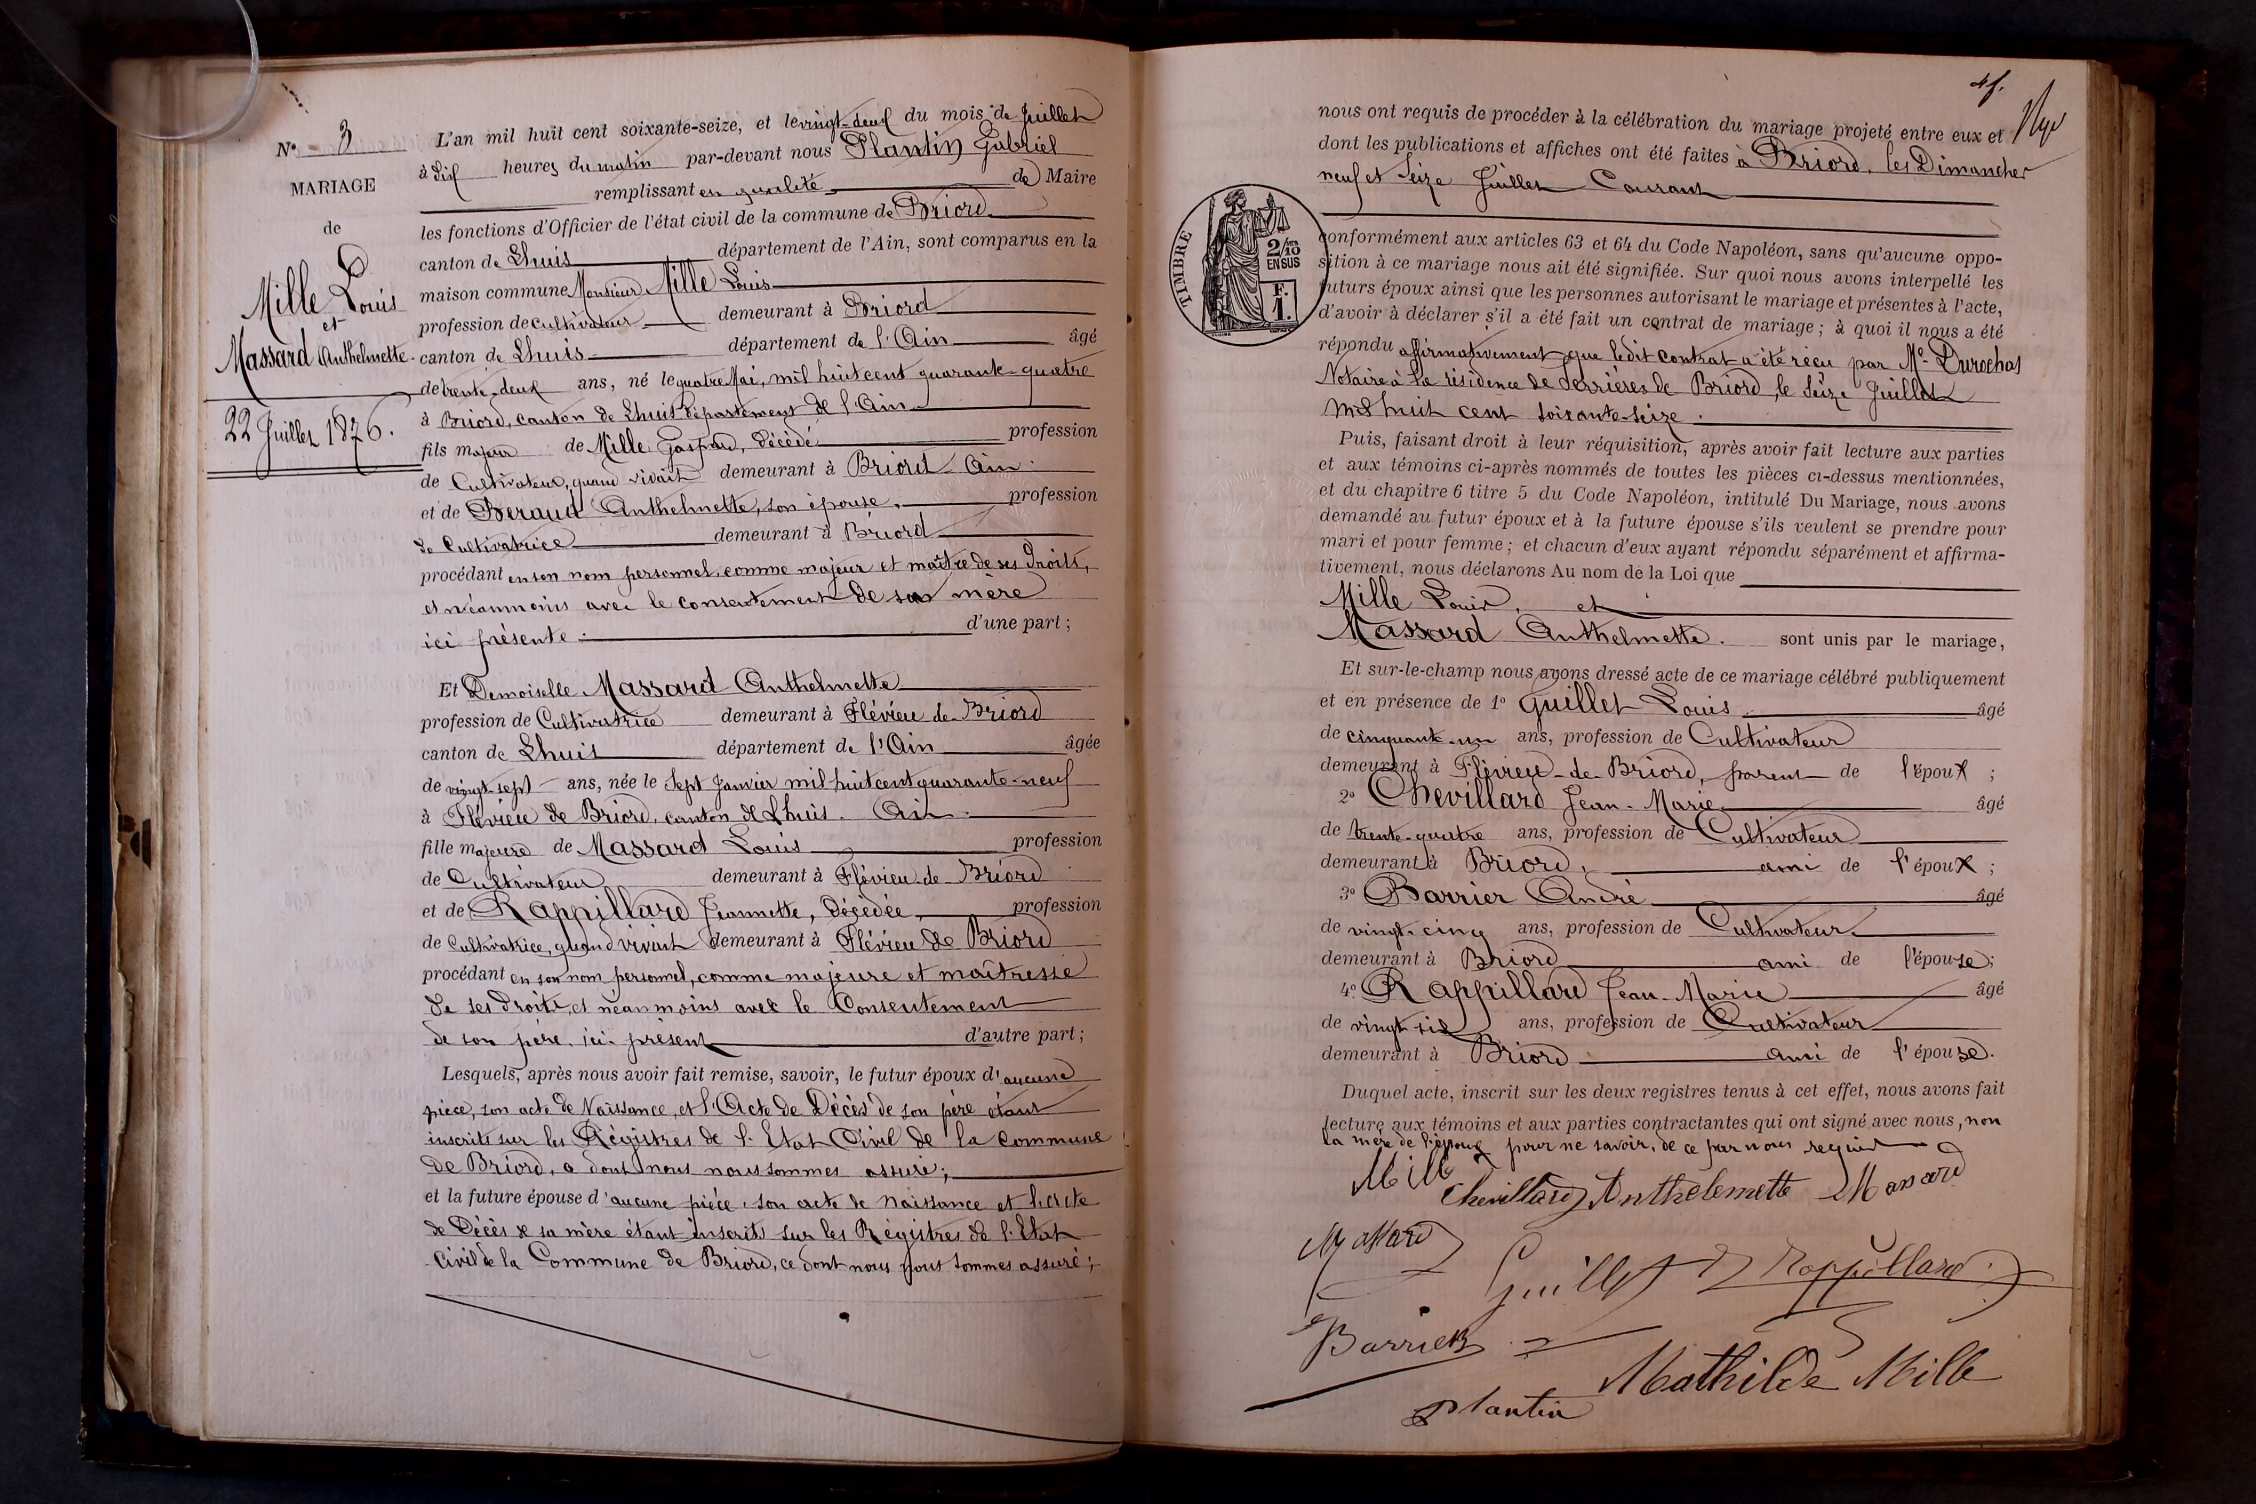 N° 3
MARIAGE
de
Mille Louis
et
Massard Anthelmette.
22 Juillet 1876.
L'an mil huit cent soixante-seize, et le vingt-deux du mois de Juillet
à dix heures du matin par-devant nous Plantin Gabriel
remplissant en qualité de Maire
les fonctions d'Officier de l'état civil de la commune de Briord
canton de Lhuis département de l'Ain, sont comparus en la
maison commune Monsieur Mille Louis
profession de cultivateur demeurant à Briord
canton de Lhuis département de l'Ain âgé
de trente-deux ans, né le quatre Mai, mil huit cent quarante-quatre
à Briord, canton de Lhuis département de l'Ain
fils majeur de Mille Gaspard, décédé profession
de Cultivateur, quand vivait demeurant à Briord Ain.
et de Beraud Anthelmette, son épouse, profession
de Cultivatrice demeurant à Briord
procédant en son nom personnel, comme majeur et maître de ses droits,
et néanmoins avec le consentement de sa mère
ici présente. d'une part;
Et Demoiselle Massard Anthelmette
profession de Cultivatrice demeurant à Flévieu de Briord
canton de Lhuis département de l'Ain âgée
de vingt-sept ans, née le sept Janvier mil huit cent quarante-neuf
à Flévieu de Briord, canton de Lhuis. Ain.
fille majeure de Massard Louis profession
de Cultivateur demeurant à Flévieu de Briord
et de Rappillard Jeannette, Décédée, profession
de Cultivatrice, quand vivait demeurant à Flévieu de Briord
procédant en son nom personnel, comme majeure et maîtresse
de ses droits, et néanmoins avec le Consentement
de son père ici présent d'autre part;
Lesquels, après nous avoir fait remise, savoir, le futur époux d'aucune
pièce, son acte de Naissance, et l'Acte de Décès de son père étant
inscrits sur les Régistres de l'Etat Civil de la commune
de Briord, a dont nous nous sommes assuré;
et la future épouse d'aucune pièce, son acte de naissance et l'acte
de Décès de sa mère étant inscrits sur les Régistres de l'Etat
Civil de la Commune de Briord, ce dont nous nous sommes assuré;
nous ont requis de procéder à la célébration du mariage projeté entre eux et
dont les publications et affiches ont été faites à Briord, les Dimanches
neuf et Seize Juillet Courant
TIMBRE
2/10
EN SUS
F.
1.
conformément aux articles 63 et 64 du Code Napoléon, sans qu'aucune oppo-
sition à ce mariage nous ait été signifiée. Sur quoi nous avons interpellé les
futurs époux ainsi que les personnes autorisant le mariage et présentes à l'acte,
d'avoir à déclarer s'il a été fait un contrat de mariage; à quoi il nous a été
répondu affirmativement que ledit contrat a été reçu par Me Durochas
Notaire à la résidence de Serrières de Briord, le Seize Juillet
mil huit cent soixante-seize.
Puis, faisant droit à leur réquisition, après avoir fait lecture aux parties
et aux témoins ci-après nommés de toutes les pièces ci-dessus mentionnées,
et du chapitre 6 titre 5 du Code Napoléon, intitulé Du Mariage, nous avons
demandé au futur époux et à la future épouse s'ils veulent se prendre pour
mari et pour femme; et chacun d'eux ayant répondu séparément et affirma-
tivement, nous déclarons Au nom de la Loi que
Mille Louis, et
Massard Anthelmette. sont unis par le mariage,
Et sur-le-champ nous avons dressé acte de ce mariage célébré publiquement
et en présence de 1° Guillet Louis âgé
de cinquante-un ans, profession de Cultivateur
demeurant à Flévieu-de-Briord, parent de l'époux;
2° Chevillard Jean-Marie âgé
de trente-quatre ans, profession de Cultivateur
demeurant à Briord, ami de l'époux;
3° Barrier André âgé
de vingt-cinq ans, profession de Cultivateur
demeurant à Briord ami de l'épouse;
4° Rappillard Jean-Marie âgé
de vingt-six ans, profession de Cultivateur
demeurant à Briord ami de l'épouse.
Duquel acte, inscrit sur les deux registres tenus à cet effet, nous avons fait
lecture aux témoins et aux parties contractantes qui ont signé avec nous, non
la mère de l'époux pour ne savoir, de ce par nous requise
Mille
Chevillard Anthelemette Massard
Massard
Guillet Rappillard
Barrier
Mathilde Mille
Plantin